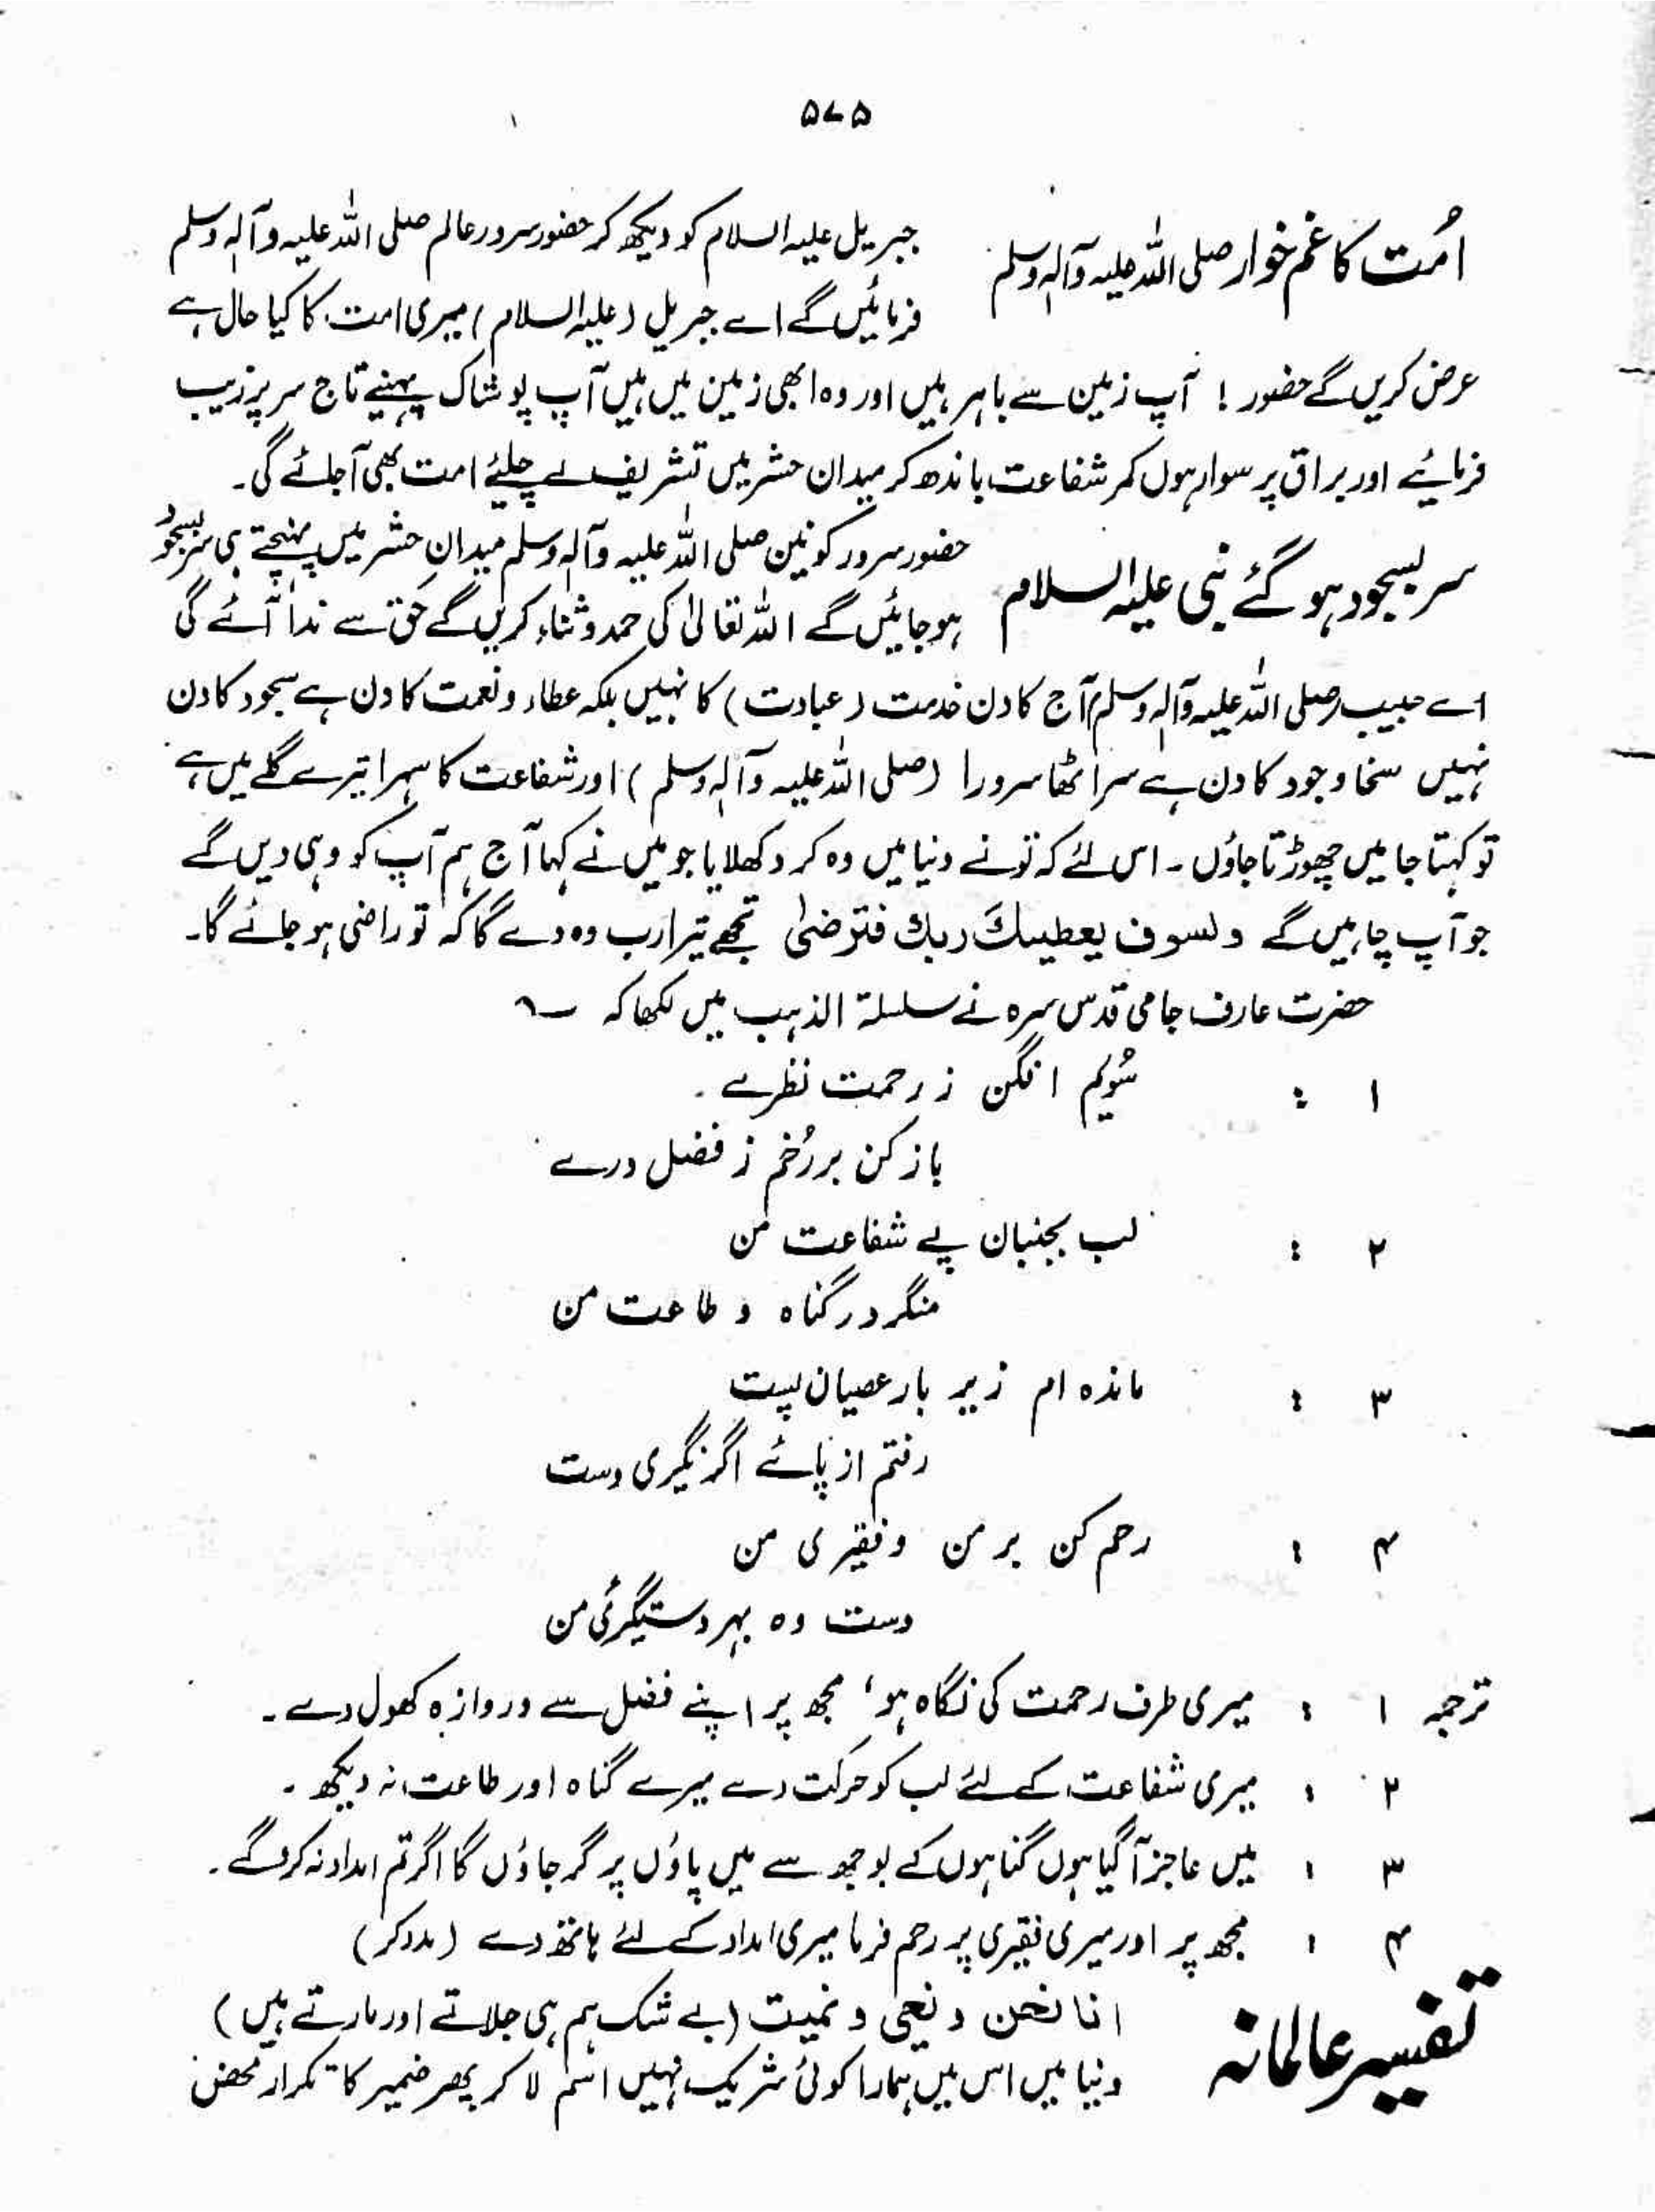 ۵۷۵
اُمت کا غم خوار صلی اللہ علیہ وآلہٖ وسلم
جبریل علیہ السلام کو دیکھ کر حضور سرور عالم صلی اللہ علیہ وآلہٖ وسلم
فرمائیں گے اے جبریل (علیہ السلام) میری امت کا کیا حال ہے
عرض کریں گے حضور ! آپ زمین سے باہر ہیں اور وہ ابھی زمین میں ہیں آپ پوشاک پہنیے تاج سر پر زیب
فرمائیے اور براق پر سوار ہوں کمر شفاعت باندھ کر میدان حشر میں تشریف لے چلیئے امت بھی آجائے گی۔
سر بسجود ہو گئے نبی علیہ السلام
حضور سرور کونین صلی اللہ علیہ وآلہٖ وسلم میدانِ حشر میں پہنچتے ہی سربسجُود
ہو جائیں گے اللہ تعالیٰ کی حمد و ثناء کریں گے حق سے نداٴ آئے گی
اے حبیب (صلی اللہ علیہ وآلہٖ وسلم) آج کا دن خدمت (عبادت) کا نہیں بلکہ عطاء و نعمت کا دن ہے سجود کا دن
نہیں سخا و جود کا دن ہے سر اٹھا سرورا (صلی اللہ علیہ وآلہٖ وسلم) اور شفاعت کا سہرا تیرے گلے میں ہے
تو کہتا جا میں چھوڑتا جاؤں ۔ اس لئے کہ تو نے دنیا میں وہ کر دکھلایا جو میں نے کہا آج ہم آپ کو وہی دیں گے
جو آپ چاہیں گے ولسوف یعطیک ربك فترضیٰ تجھے تیرا رب وہ دے گا کہ تو راضی ہو جائے گا۔
حضرت عارف جامی قدس سرہ نے سلسلۃ الذہب میں لکھا کہ ؎
۱ : سُویم افگن ز رحمت نظرے ۔
باز کن بر رُخم ز فضل درے
۲ : لب بجنبان پے شفاعت من
منگر در گناہ و طاعت من
۳ : ماندہ ام زیر بار عصیان پست
رفتم از پائے اگر نگیری دست
۴ : رحم کن بر من و فقیری من
دست دہ بہر دستگیرئی من
ترجمہ ۱ : میری طرف رحمت کی نگاہ ہو، مجھ پر اپنے فضل سے دروازہ کھول دے ۔
۲ : میری شفاعت کے لئے لب کو حرکت دے میرے گناہ اور طاعت نہ دیکھ ۔
۳ : میں عاجز آ گیا ہوں گناہوں کے بوجھ سے میں پاؤں پر گر جاؤں گا اگر تم امداد نہ کرو گے ۔
۴ : مجھ پر اور میری فقیری پر رحم فرما میری امداد کے لئے ہاتھ دے (مدد کر)
تفسیر عالمانہ
انا نحن و نحی و نمیت (بے شک ہم ہی جلاتے اور مارتے ہیں)
دنیا میں اس میں ہمارا کوئی شریک نہیں اسم لا کر پھر ضمیر کا تکرار محض